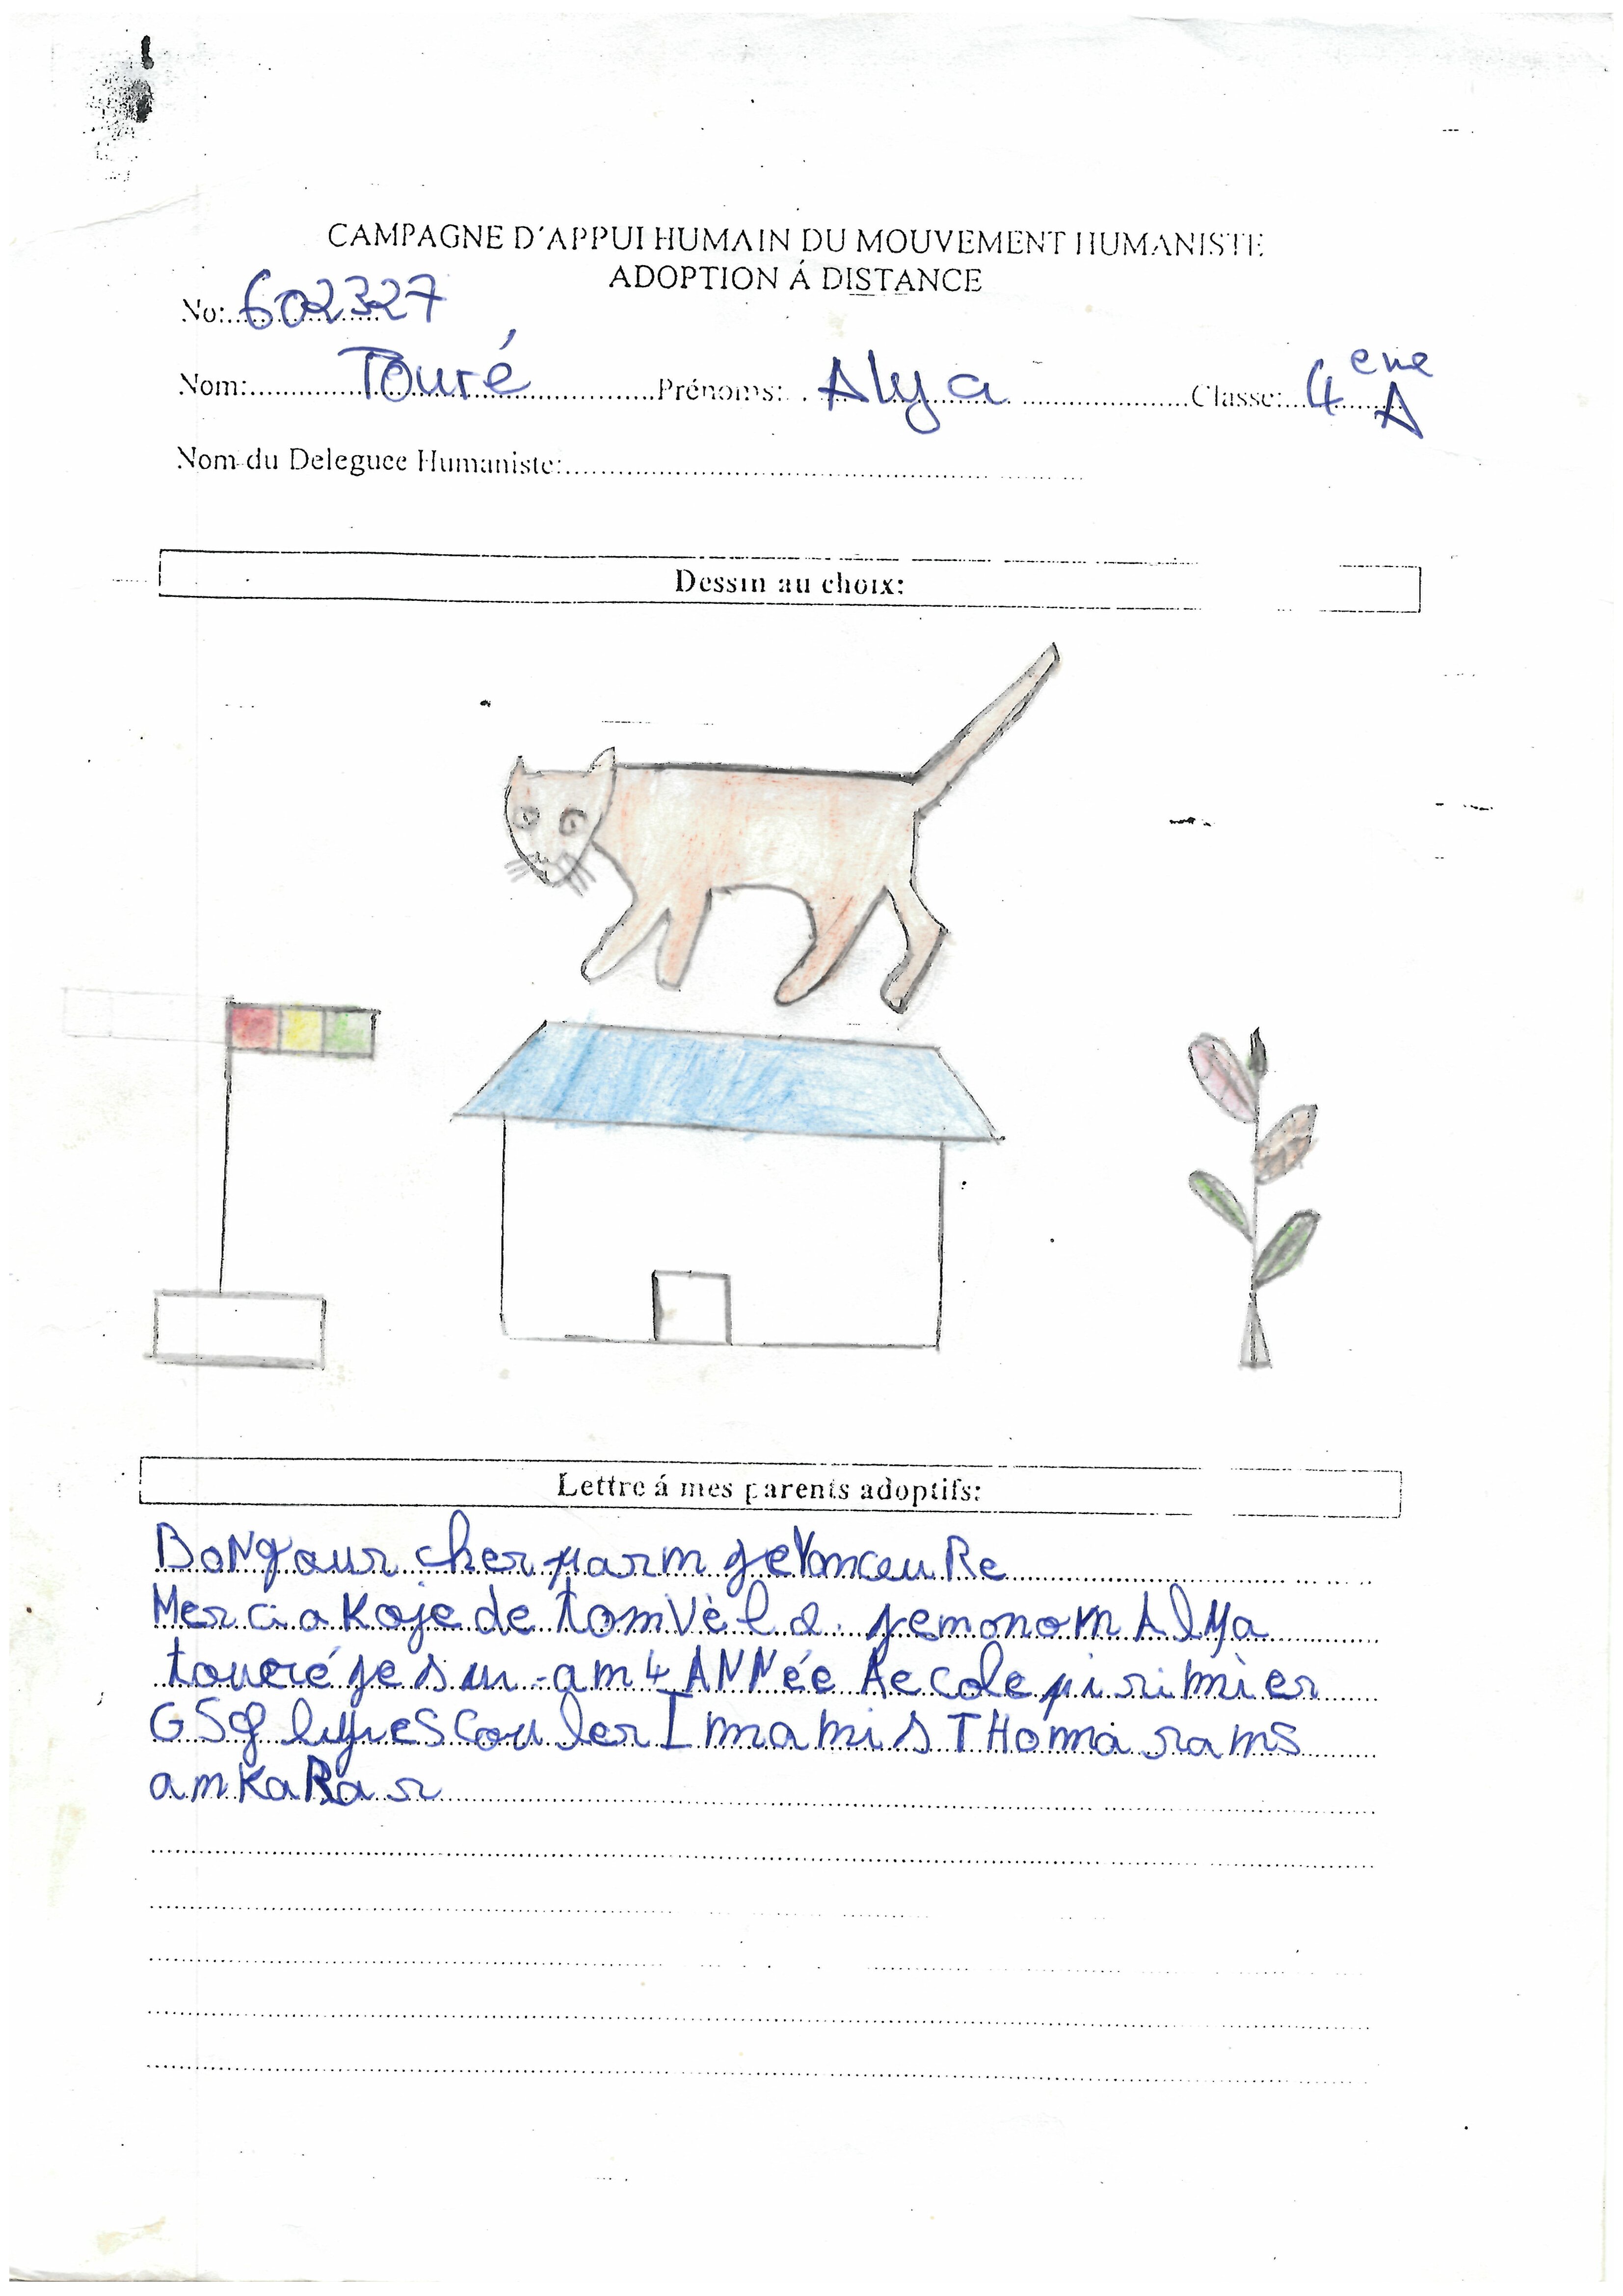 CAMPAGNE D'APPUI HUMAIN DU MOUVEMENT HUMANISTE
ADOPTION Á DISTANCE
No: 602327
Nom: Touré Prénoms: Alya Classe: 4 eme A
Nom du Deleguee Humaniste:
Dessin au choix:
Lettre á mes parents adoptifs:
BoNgour cher parm je
Merci a Koje de tomVèl a. jemonom AlYa
toueré je sui-am 4 ANNée Aecole pirimier
GSg lyre Scouler I mamis THoma sams
amKaRar